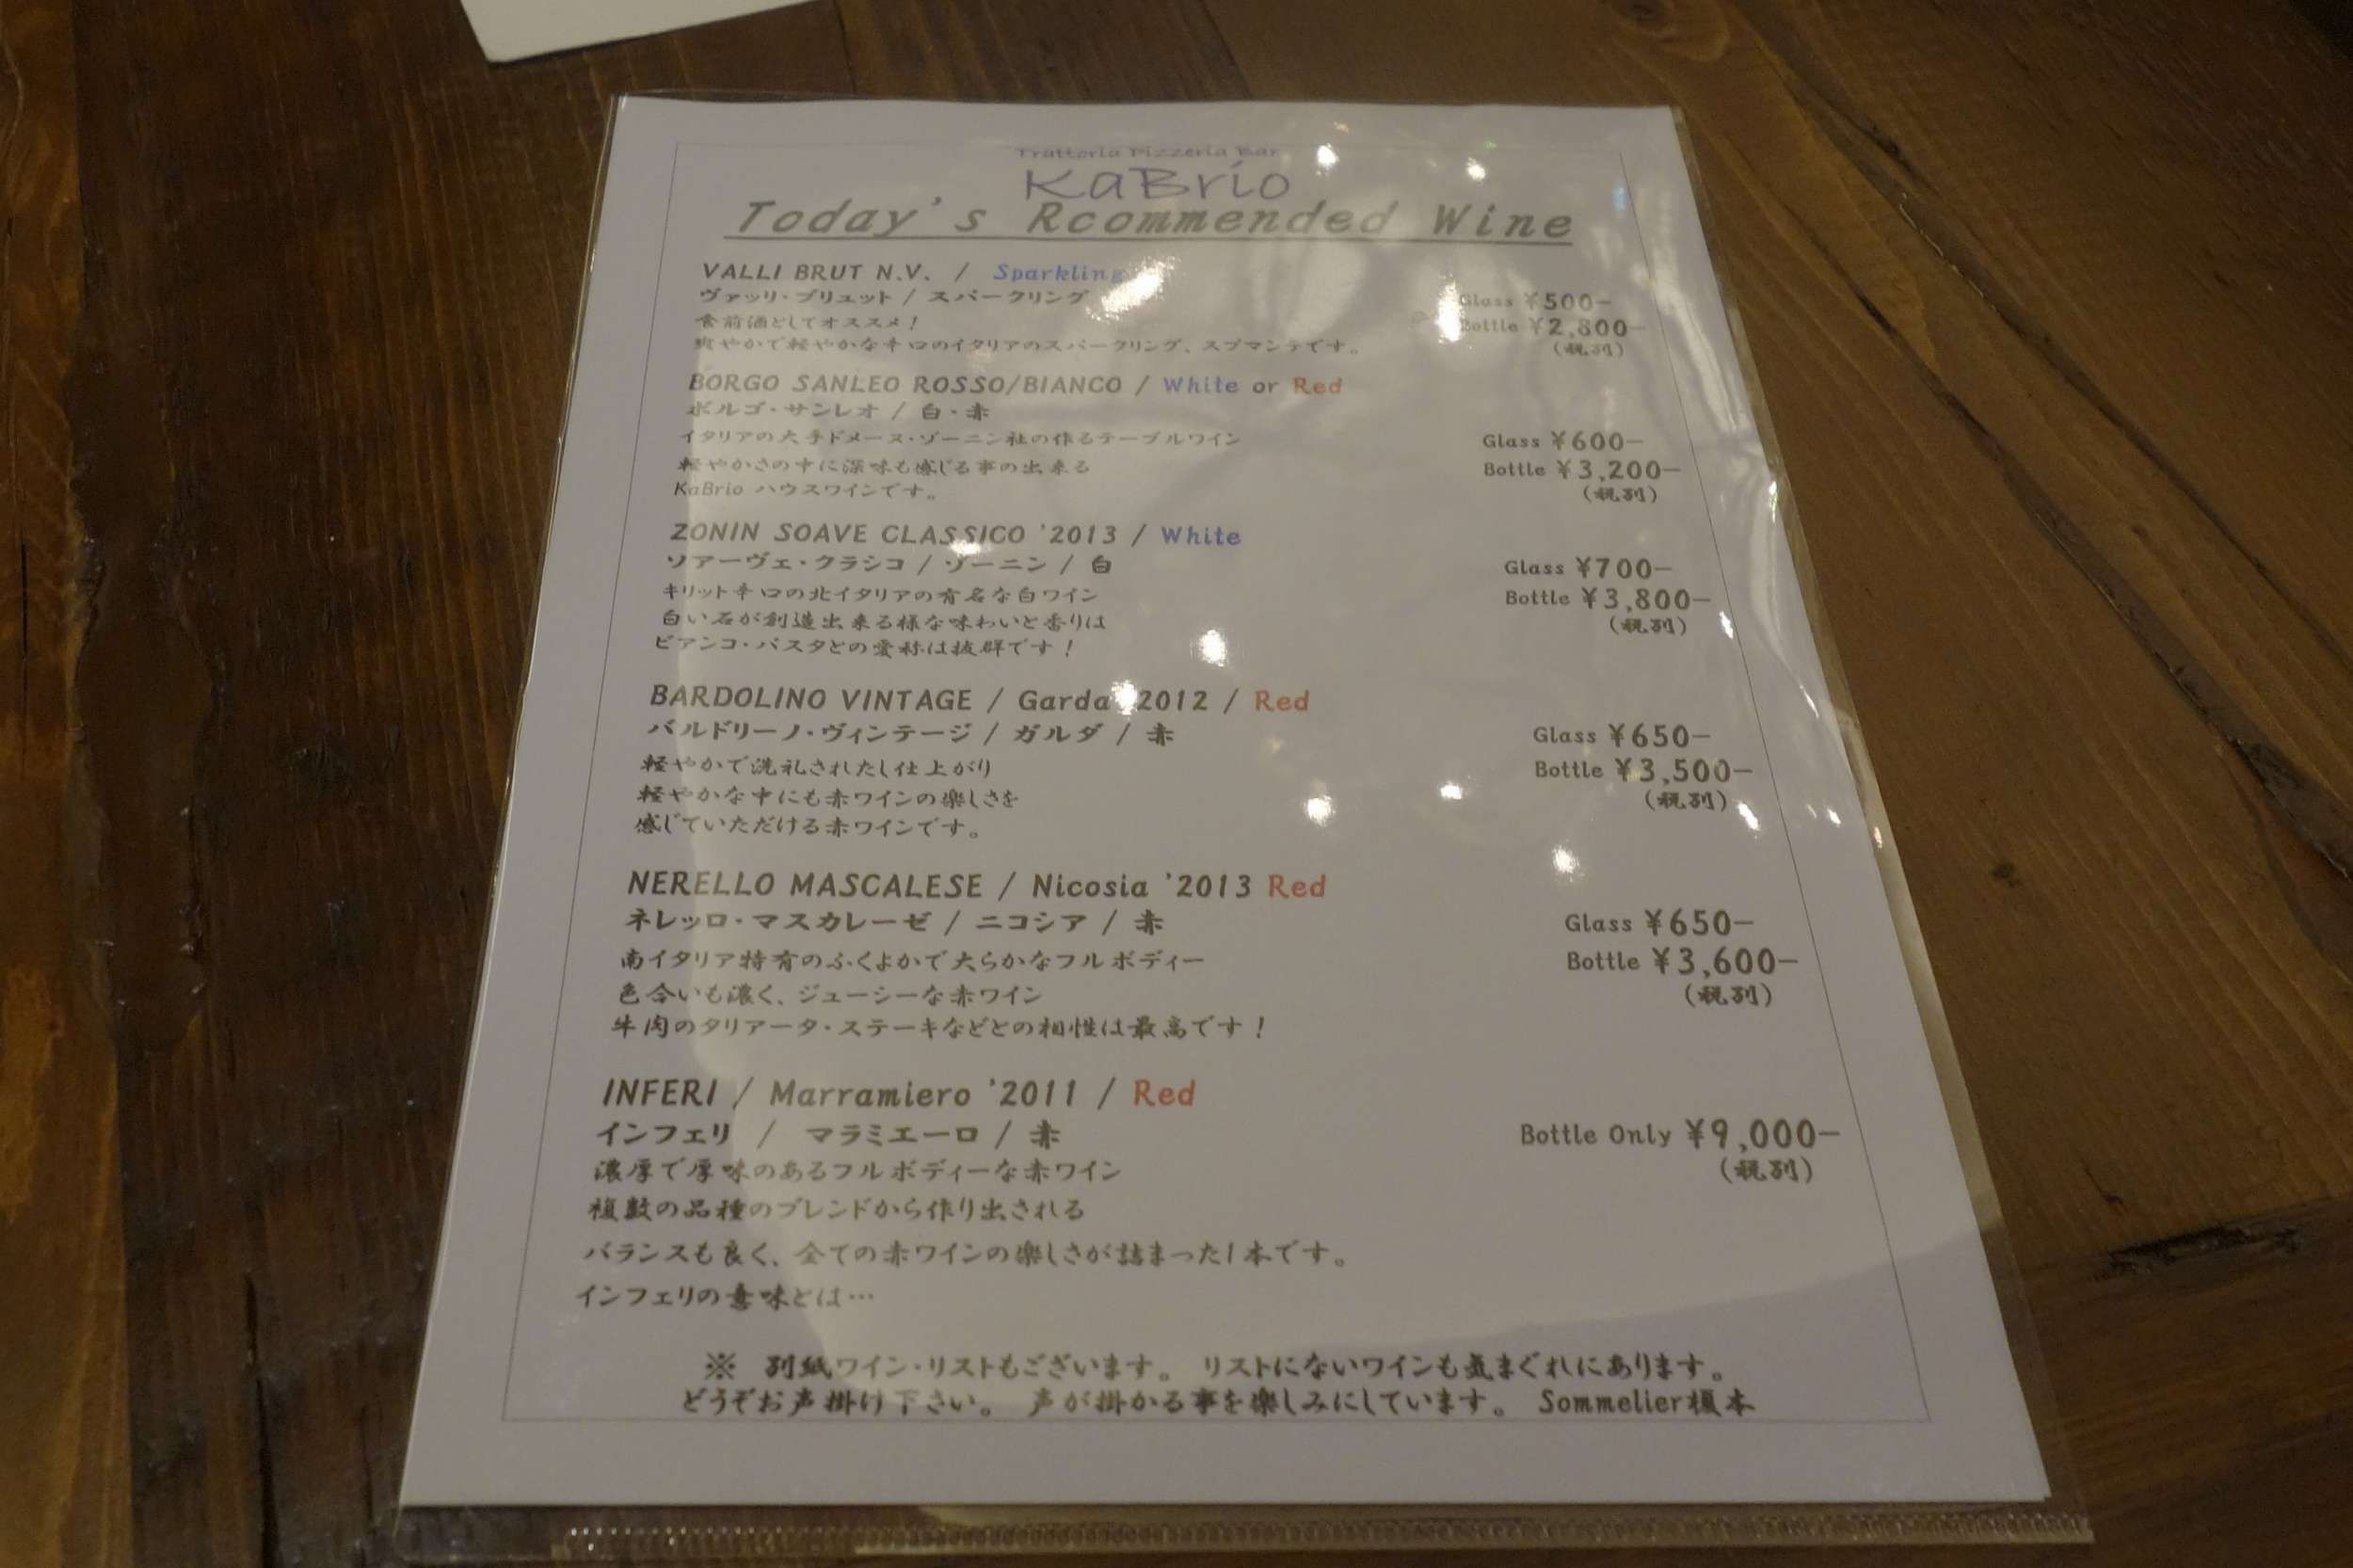 Trattoria Pizzeria Bar
KaBrio
Today's Rcommended Wine
VALLI BRUT N.V. / Sparkling
ヴァッリ・ブリュット / スパークリング
Glass ¥500-
食前酒としてオススメ!
Bottle ¥2,800-
爽やかで軽やかな辛口のイタリアのスパークリング、スプマンテです。
(税別)
BORGO SANLEO ROSSO/BIANCO / White or Red
ボルゴ・サンレオ / 白・赤
イタリアの大手ドメーヌ・ゾーニン社の作るテーブルワイン
Glass ¥600-
軽やかさの中に深味も感じる事の出来る
Bottle ¥3,200-
KaBrio ハウスワインです。
(税別)
ZONIN SOAVE CLASSICO '2013 / White
ソアーヴェ・クラシコ / ゾーニン / 白
Glass ¥700-
キリット辛口の北イタリアの有名な白ワイン
Bottle ¥3,800-
白い石が創造出来る様な味わいと香りは
(税別)
ビアンコ・パスタとの愛称は抜群です!
BARDOLINO VINTAGE / Garda '2012 / Red
バルドリーノ・ヴィンテージ / ガルダ / 赤
Glass ¥650-
軽やかで洗礼されたし仕上がり
Bottle ¥3,500-
軽やかな中にも赤ワインの楽しさを
(税別)
感じていただける赤ワインです。
NERELLO MASCALESE / Nicosia '2013 Red
ネレッロ・マスカレーゼ / ニコシア / 赤
Glass ¥650-
南イタリア特有のふくよかで大らかなフルボディー
Bottle ¥3,600-
色合いも濃く、ジューシーな赤ワイン
(税別)
牛肉のタリアータ・ステーキなどとの相性は最高です!
INFERI / Marramiero '2011 / Red
インフェリ / マラミエーロ / 赤
Bottle Only ¥9,000-
濃厚で厚味のあるフルボディーな赤ワイン
(税別)
複数の品種のブレンドから作り出される
バランスも良く、全ての赤ワインの楽しさが詰まった1本です。
インフェリの意味とは…
※ 別紙ワイン・リストもございます。 リストにないワインも気まぐれにあります。
どうぞお声掛け下さい。 声が掛かる事を楽しみにしています。 Sommelier榎本